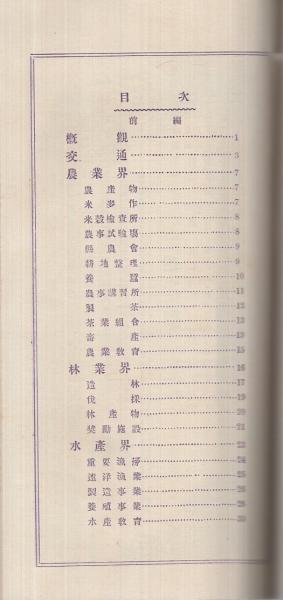 目次
前編
概觀 1
交通 3
農業界 7
農產物 7
米麥作 7
米穀檢查所 8
農事試驗場 8
縣農會 9
耕地整理 9
養蠶 10
農事講習所 11
製茶 12
茶業組合 13
畜產 13
農業敎育 15
林業界 16
造林 17
伐採 19
林產物 20
奬勵施設 21
水產界 23
重要漁撈 24
遠洋漁業 25
製造事業 26
養殖事業
水產敎育